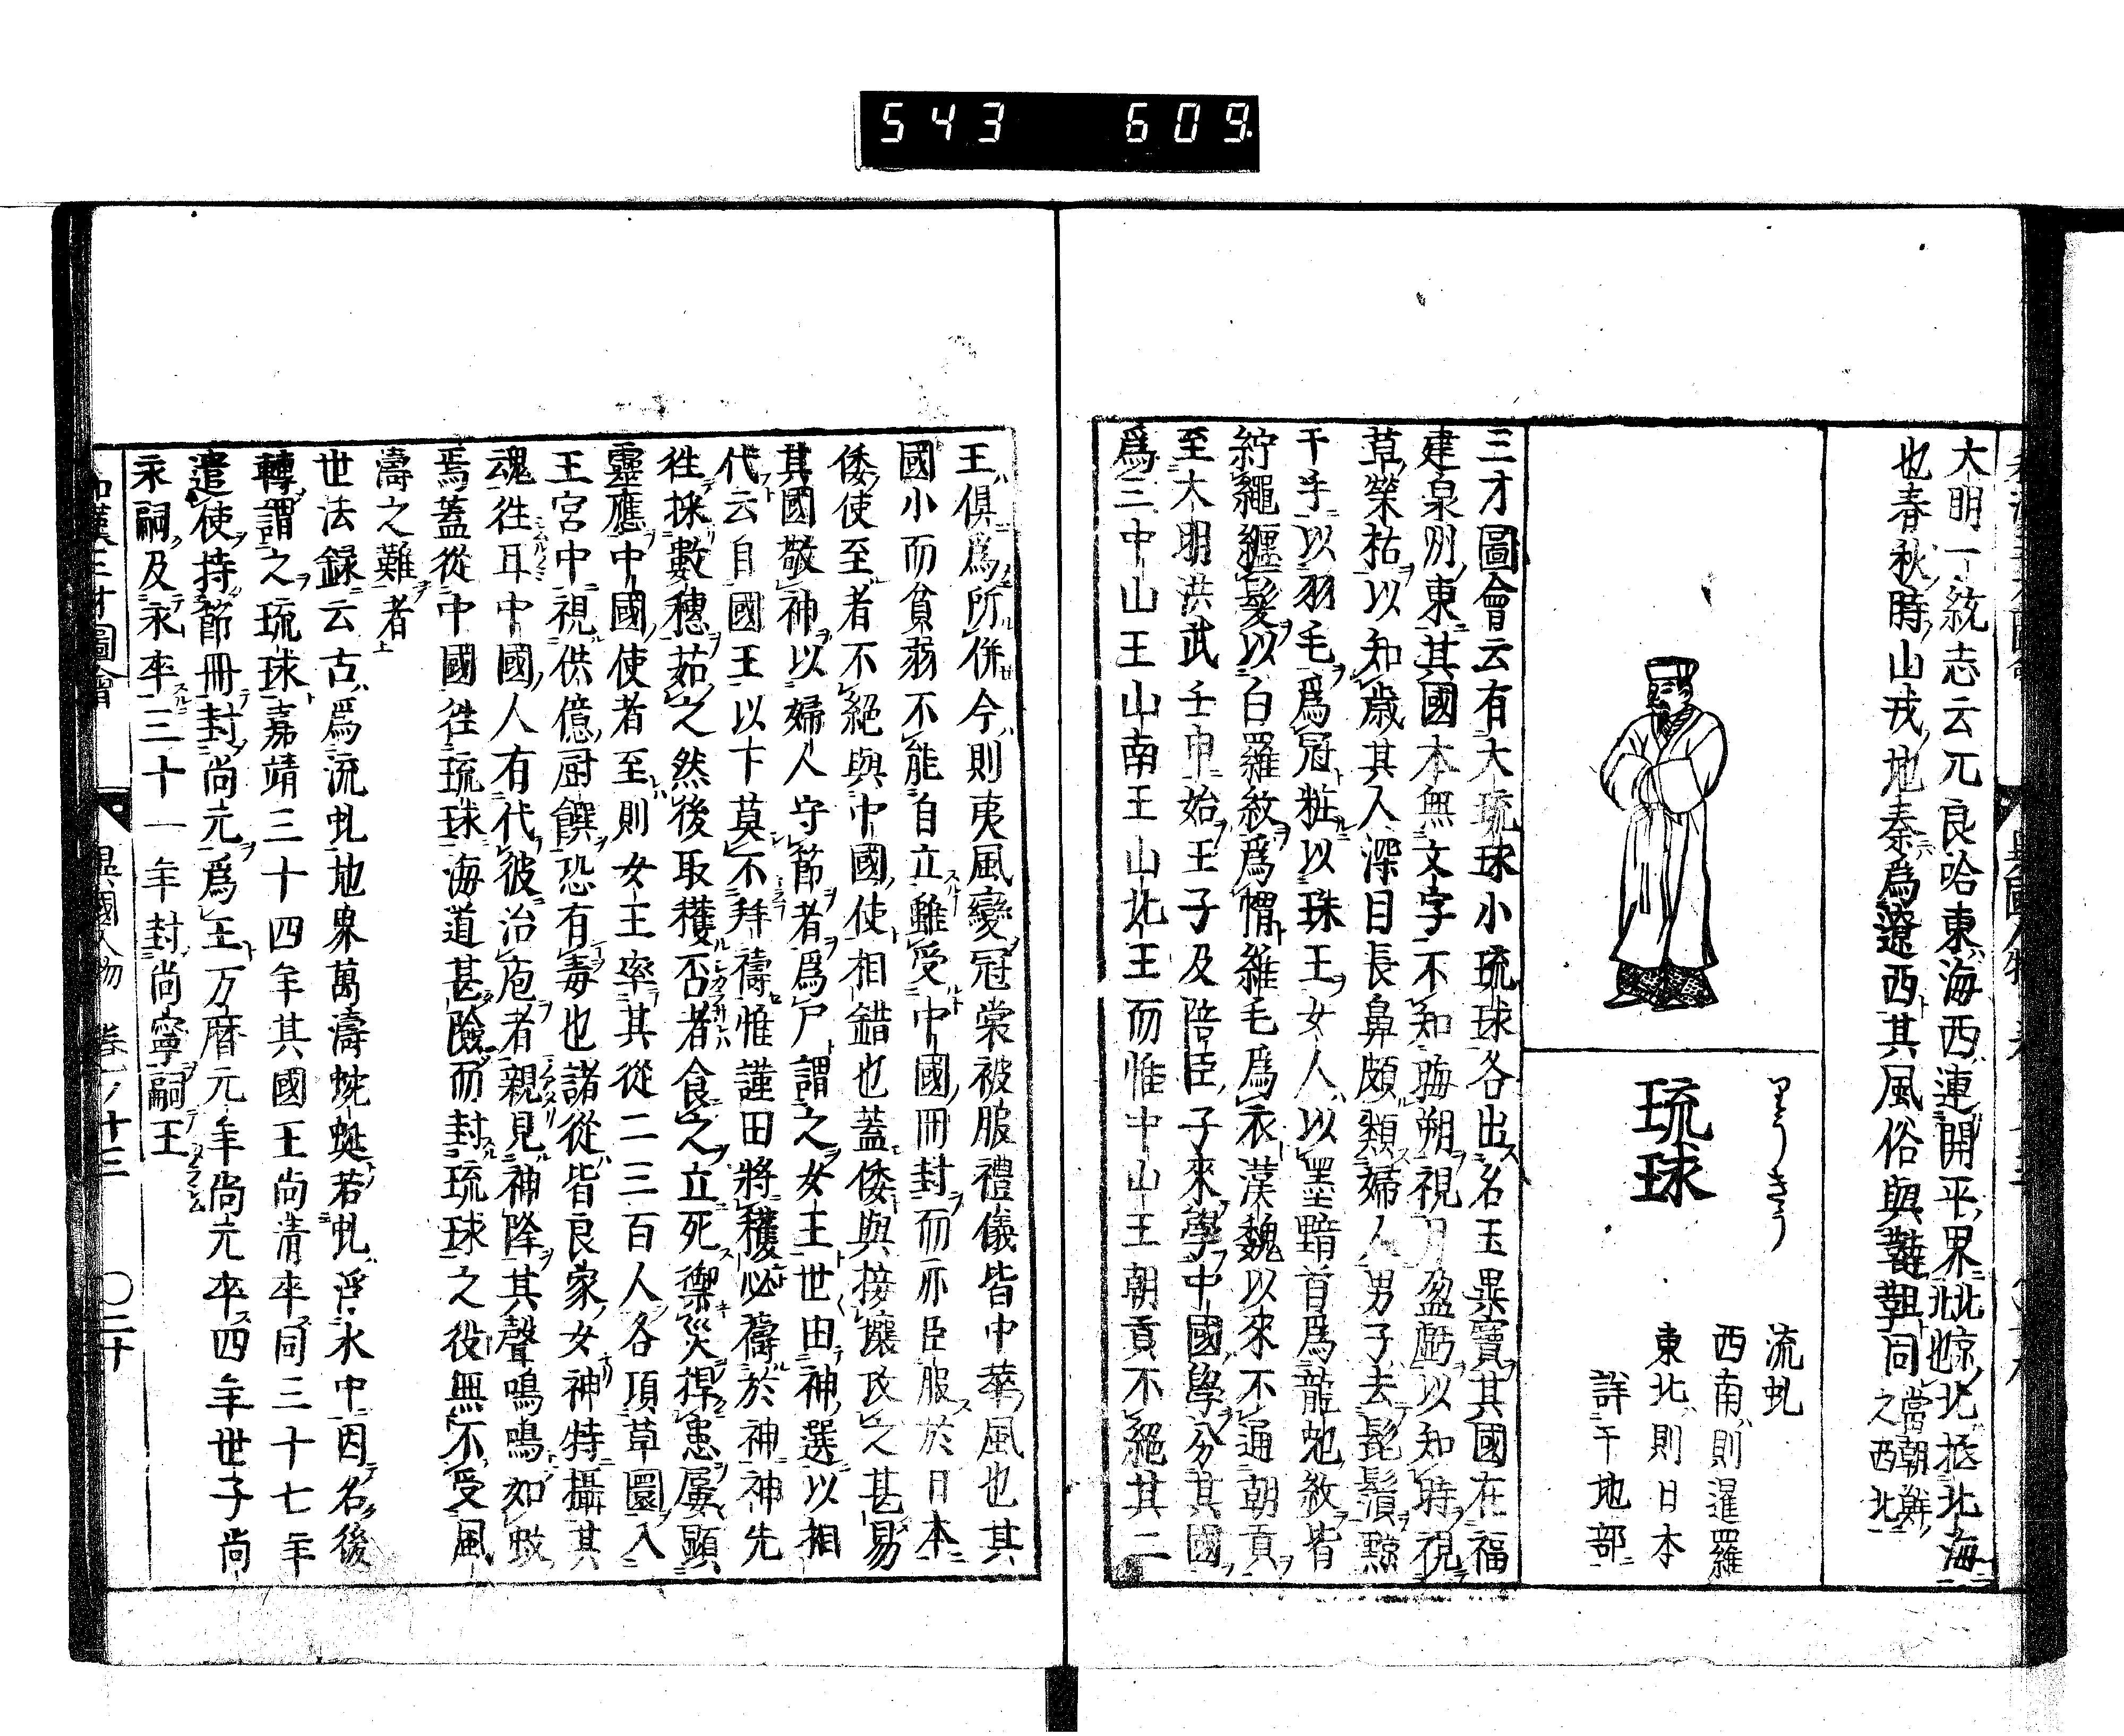 543 609.
大明一統志云兀良哈東海西連開平界北北京北抵北海
也春秋時山戎地秦爲遼西其風俗與韃靼同北地當朝鮮之西北
りうきう
琉球
流虬
西南則暹羅
東北則日本
詳于地部
三才圖會云有大琉球小琉球各出名玉異寶其國在福
建泉州東其國本無文字不知晦朔視月盈虧以知時視
草榮枯以知歳其人深目長鼻頗類婦人男子去髭鬚黥
于手以羽毛爲冠粧以珠玉女人以墨黥首爲龍虵紋皆
紵繩纒髮以白羅紋爲帽雜毛爲衣漢魏以來不通朝貢
至大明洪武壬申始王子及陪臣子來學中國學分其國
爲三中山王山南王山北王而惟中山王朝貢不絕其二
王俱爲所併今則夷風變冠裳被服禮儀皆中華風也其
國小而貧弱不能自立雖受中國冊封而亦臣服於日本
倭使至者不絕與中國使相錯也蓋倭與接壤攻之甚易
其國敬神以婦人守節者爲尸謂之女王世由神選以相
代云自國王以下莫不拜禱惟謹田將穫必禱於神神先
徃採數穗茹之然後取穫否者食之立死禦災捍患屢顯
靈應中國使者至則女王率其從二三百人各頂草圈入
王宮中視供億厨饌恐有毒也諸從皆良家女神特攝其
魂徃耳中國人有代彼治庖者親見神降其聲鳴鳴如蚊
焉蓋從中國徃琉球海道甚險而封琉球之役無不受風
濤之難者
世法録云古爲流虬地界萬濤蜿蜒若虬浮水中因名後
轉謂之琉球嘉靖三十四年其國王尚清卒同三十七年
遣使持節冊封尚元爲王万曆元年尚元卒四年世子尚
永嗣及永卒三十一年封尚寧嗣王
和漢三才圖會 異國人物 卷ノ十三 〇二十